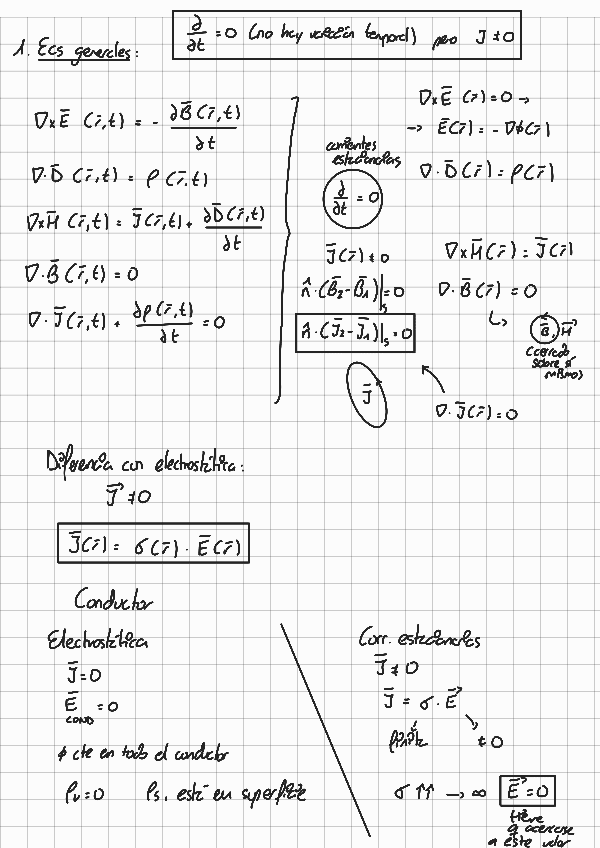 1. Ecs generales:
∂/∂t = 0 (no hay variación temporal) pero J ≠ 0
∇×E̅ (r̅,t) = - ∂B̅(r̅,t)/∂t
∇·D̅ (r̅,t) = ρ(r̅,t)
∇×H̅ (r̅,t) = J̅(r̅,t) + ∂D̅(r̅,t)/∂t
∇·B̅(r̅,t) = 0
∇·J̅(r̅,t) + ∂ρ(r̅,t)/∂t = 0
corrientes
estacionarias
∂/∂t = 0
J̅(r̅) ≠ 0
n̂·(B̅₂-B̅₁)|s = 0
n̂·(J̅₂-J̅₁)|s = 0
J̅
∇×E̅ (r̅) = 0 →
→ E̅(r̅) = - ∇ϕ(r̅)
∇·D̅(r̅) = ρ(r̅)
∇×H̅(r̅) = J̅(r̅)
∇·B̅(r̅) = 0
↳ B̅, H⃗
(cerrado
sobre sí
mismo)
∇·J̅(r̅) = 0
Diferencia con electrostática:
J⃗ ≠ 0
J̅(r̅) = σ(r̅) · E̅(r̅)
Conductor
Electrostática
J̅ = 0
E̅ COND = 0
ϕ cte en todo el conductor
ρv = 0 ρs, está en superficie
Corr. estacionarias
J̅ ≠ 0
J̅ = σ · E⃗
finita ≠ 0
σ ↑↑ → ∞ E⃗ = 0
tiene
a acercarse
a este valor